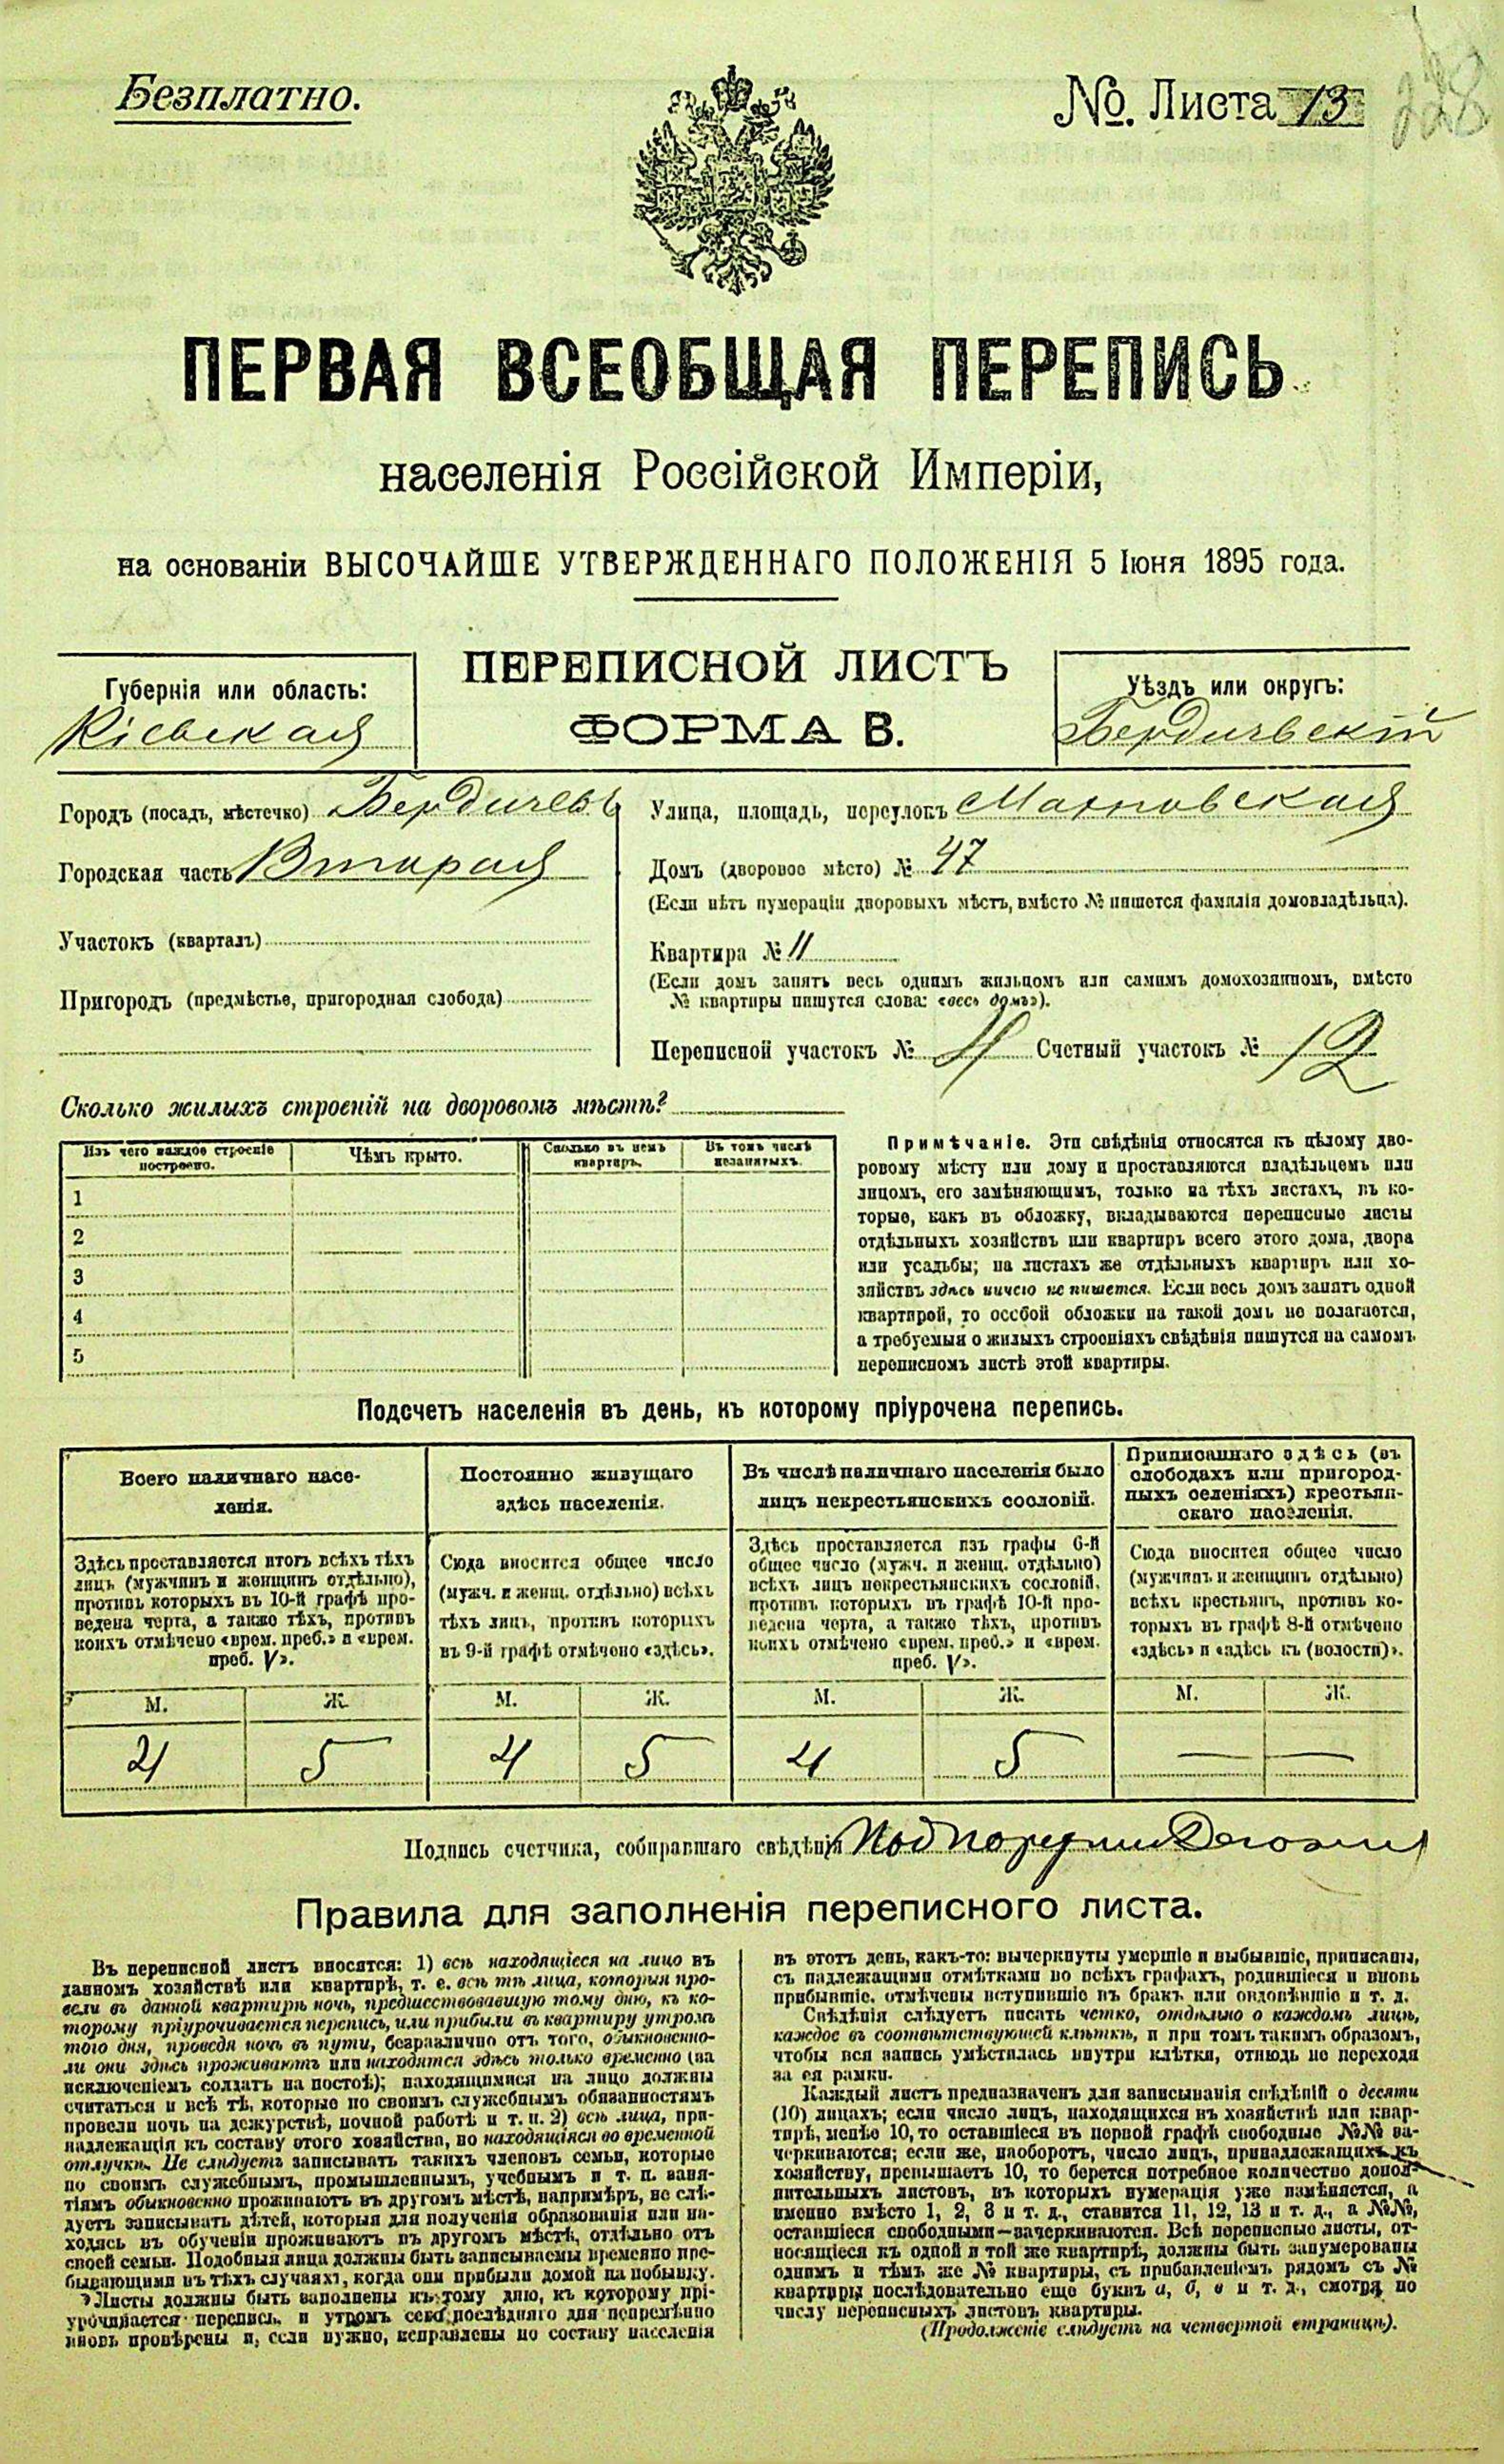 Безплатно.
№. Листа 13
228
ПЕРВАЯ ВСЕОБЩАЯ ПЕРЕПИСЬ
населенія Россійской Имперіи,
на основаніи ВЫСОЧАЙШЕ УТВЕРЖДЕННАГО ПОЛОЖЕНІЯ 5 Іюня 1895 года.
ПЕРЕПИСНОЙ ЛИСТЪ
ФОРМА В.
Губернія или область:
Кіевская
Уѣздъ или округъ:
Бердичевскій
Городъ (посадъ, мѣстечко) Бердичевъ
Городская часть Вторая
Участокъ (кварталъ)
Пригородъ (предмѣстье, пригородная слобода)
Улица, площадь, переулокъ Махновская
Домъ (дворовое мѣсто) № 47
(Если нѣтъ нумераціи дворовыхъ мѣстъ, вмѣсто № пишется фамилія домовладѣльца).
Квартира № 11
(Если домъ занятъ весь однимъ жильцомъ или самимъ домохозяиномъ, вмѣсто
№ квартиры пишутся слова: «весь домъ»).
Переписной участокъ № 4 Счетный участокъ № 12
Сколько жилыхъ строеній на дворовомъ мѣстѣ?
Изъ чего каждое строеніе построено.
Чѣмъ крыто.
Сколько въ немъ квартиръ.
Въ томъ числѣ незанятыхъ.
1
2
3
4
5
Примѣчаніе. Эти свѣдѣнія относятся къ цѣлому дво-
ровому мѣсту или дому и проставляются владѣльцемъ или
лицомъ, его замѣняющимъ, только на тѣхъ листахъ, въ ко-
торые, какъ въ обложку, вкладываются переписные листы
отдѣльныхъ хозяйствъ или квартиръ всего этого дома, двора
или усадьбы; на листахъ же отдѣльныхъ квартиръ или хо-
зяйствъ здѣсь ничего не пишется. Если весь домъ занятъ одной
квартирой, то особой обложки на такой домъ не полагается,
а требуемыя о жилыхъ строеніяхъ свѣдѣнія пишутся на самомъ
переписномъ листѣ этой квартиры.
Подсчетъ населенія въ день, къ которому пріурочена перепись.
Всего наличнаго насе-
ленія.
Здѣсь проставляется итогъ всѣхъ тѣхъ
лицъ (мужчинъ и женщинъ отдѣльно),
противъ которыхъ въ 10-й графѣ про-
ведена черта, а также тѣхъ, противъ
коихъ отмѣчено «врем. преб.» и «врем.
преб. V».
Постоянно живущаго
здѣсь населенія.
Сюда вносится общее число
(мужч. и женщ. отдѣльно) всѣхъ
тѣхъ лицъ, противъ которыхъ
въ 9-й графѣ отмѣчено «здѣсь».
Въ числѣ наличнаго населенія было
лицъ некрестьянскихъ сословій.
Здѣсь проставляется изъ графы 6-й
общее число (мужч. и женщ. отдѣльно)
всѣхъ лицъ некрестьянскихъ сословій,
противъ которыхъ въ графѣ 10-й про-
ведена черта, а также тѣхъ, противъ
коихъ отмѣчено «врем. преб.» и «врем.
преб. V».
Приписаннаго здѣсь (въ
слободахъ или пригород-
ныхъ селеніяхъ) крестьян-
скаго населенія.
Сюда вносится общее число
(мужчинъ и женщинъ отдѣльно)
всѣхъ крестьянъ, противъ ко-
торыхъ въ графѣ 8-й отмѣчено
«здѣсь» и «здѣсь къ (волости)».
М. Ж. М. Ж. М. Ж. М. Ж.
4 5 4 5 4 5 — —
Подпись счетчика, собиравшаго свѣдѣнія
Правила для заполненія переписного листа.
Въ переписной листъ вносятся: 1) всѣ находящіеся на лицо въ
данномъ хозяйствѣ или квартирѣ, т. е. всѣ тѣ лица, которыя про-
вели въ данной квартирѣ ночь, предшествовавшую тому дню, къ ко-
торому пріурочивается перепись, или прибыли въ квартиру утромъ
того дня, проведя ночь въ пути, безразлично отъ того, обыкновенно-
ли они здѣсь проживаютъ или находятся здѣсь только временно (за
исключеніемъ солдатъ на постоѣ); находящимися на лицо должны
считаться и всѣ тѣ, которые по своимъ служебнымъ обязанностямъ
провели ночь на дежурствѣ, ночной работѣ и т. п. 2) всѣ лица, при-
надлежащія къ составу этого хозяйства, но находящіяся во временной
отлучкѣ. Не слѣдуетъ записывать такихъ членовъ семьи, которые
по своимъ служебнымъ, промышленнымъ, учебнымъ и т. п. заня-
тіямъ обыкновенно проживаютъ въ другомъ мѣстѣ, напримѣръ, не слѣ-
дуетъ записывать дѣтей, которыя для полученія образованія или на-
ходясь въ обученіи проживаютъ въ другомъ мѣстѣ, отдѣльно отъ
своей семьи. Подобныя лица должны быть записываемы временно пре-
бывающими въ тѣхъ случаяхъ, когда они прибыли домой на побывку.
Листы должны быть заполнены къ тому дню, къ которому прі-
урочивается перепись, и утромъ сего послѣдняго дня непремѣнно
вновь провѣрены и, если нужно, исправлены по составу населенія
въ этотъ день, какъ-то: вычеркнуты умершіе и выбывшіе, приписаны,
съ надлежащими отмѣтками во всѣхъ графахъ, родившіеся и вновь
прибывшіе, отмѣчены вступившіе въ бракъ или овдовѣвшіе и т. д.
Свѣдѣнія слѣдуетъ писать четко, отдѣльно о каждомъ лицѣ,
каждое въ соотвѣтствующей клѣткѣ, и при томъ такимъ образомъ,
чтобы вся запись умѣстилась внутри клѣтки, отнюдь не переходя
за ея рамки.
Каждый листъ предназначенъ для записыванія свѣдѣній о десяти
(10) лицахъ; если число лицъ, находящихся въ хозяйствѣ или квар-
тирѣ, менѣе 10, то оставшіеся въ первой графѣ свободные №№ за-
черкиваются; если же, наоборотъ, число лицъ, принадлежащихъ къ
хозяйству, превышаетъ 10, то берется потребное количество допол-
нительныхъ листовъ, въ которыхъ нумерація уже измѣняется, а
именно вмѣсто 1, 2, 3 и т. д., ставится 11, 12, 13 и т. д., а №№,
оставшіеся свободными—зачеркиваются. Всѣ переписные листы, от-
носящіеся къ одной и той же квартирѣ, должны быть занумерованы
однимъ и тѣмъ же № квартиры, съ прибавленіемъ рядомъ съ №
квартиры послѣдовательно еще буквъ а, б, в и т. д., смотря по
числу переписныхъ листовъ квартиры.
(Продолженіе слѣдуетъ на четвертой страницѣ).